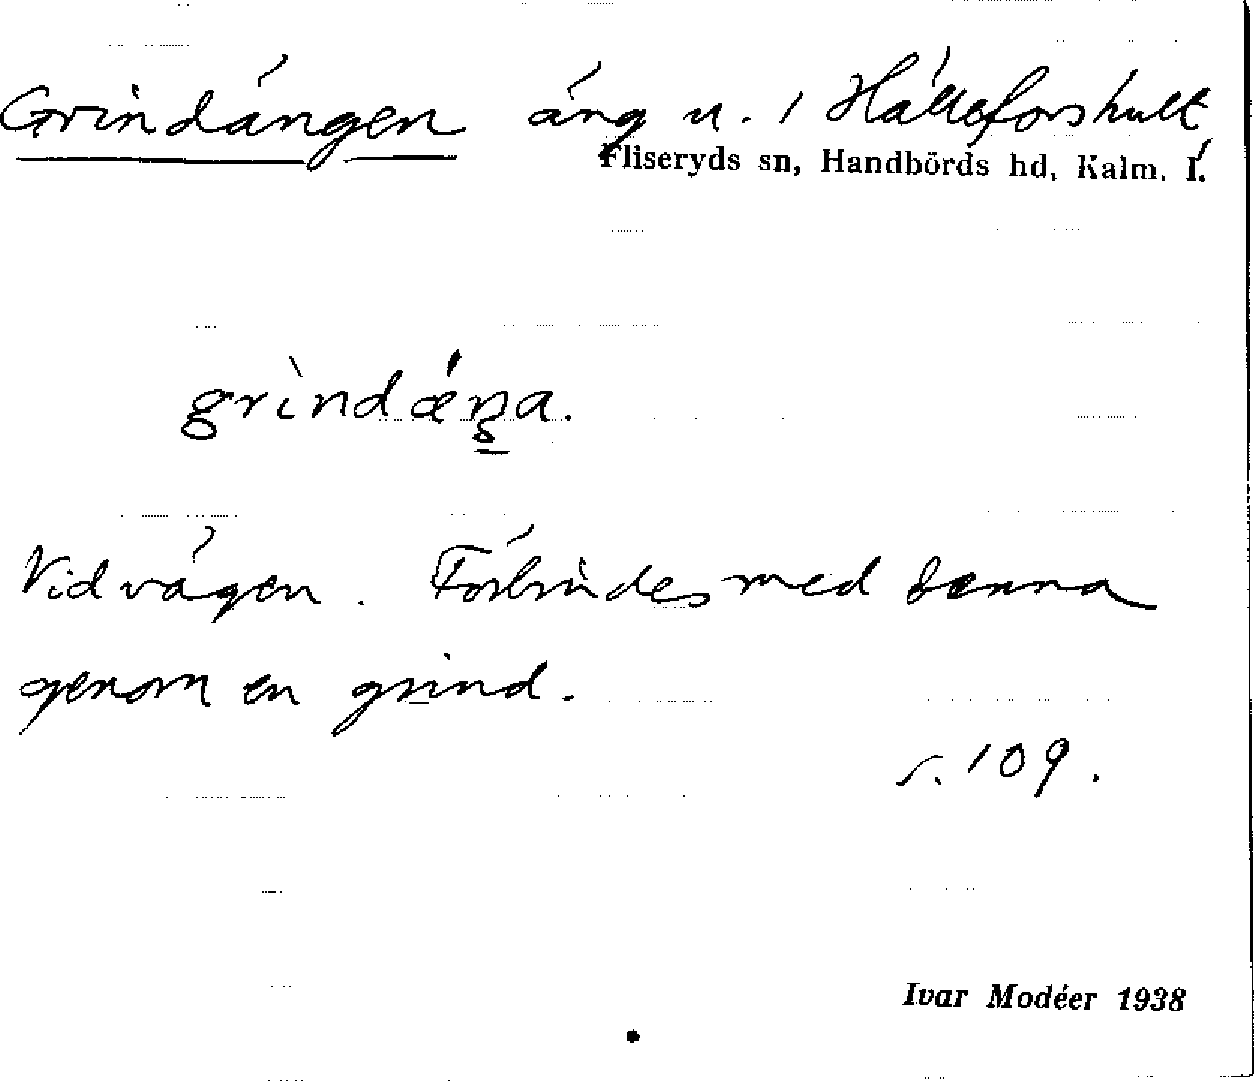 Grindängen äng u. 1 Hälleforshult,
Fliseryds sn, Handbörds hd, Kalm. l.
grìndǽŋa.
Vid vägen. Förbindes med denna
genom en grind.
s. 109.
Ivar Modéer 1938